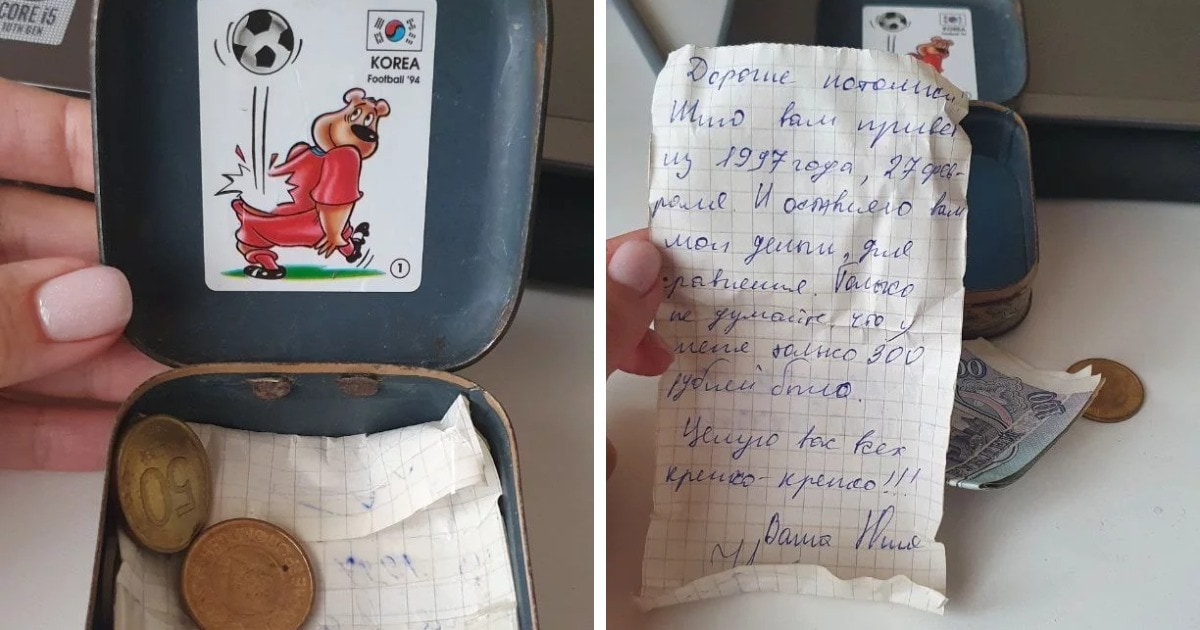 CORE i5
10TH GEN
KOREA
Football '94
1
50
KOREA
Football '94
Дорогие потомки
Шлю вам привет
из 1997 года, 27 фев-
раля. И оставляю вам
мои деньги, для
сравнения. Только
не думайте, что у
меня только 300
рублей было.
Целую вас всех
крепко-крепко!!!
Ваша Юля